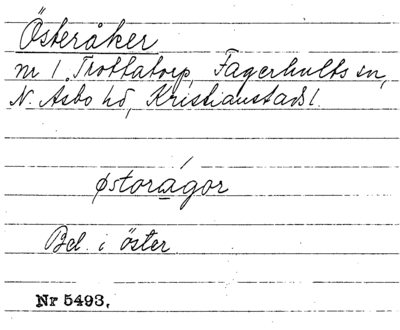 Österåker
nr 1 Trottatorp, Fagerhults sn,
N. Åsbo hd, Kristianstads l.
østorágor
Bel. i öster.
Nr 5493.